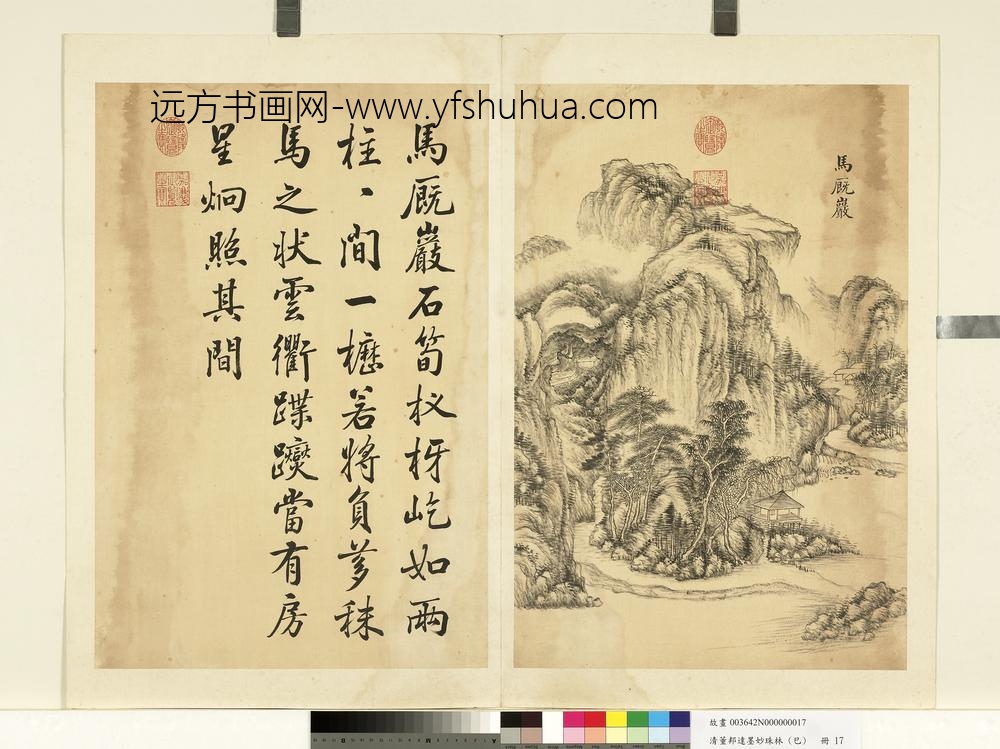 远方书画网-www.yfshuhua.com
馬廐巖
馬廐巖石筍杈枒屹如兩
柱、間一櫪若將負芻秣
馬之狀雲衢蹀躞當有房
星炯照其間
故畫 003642N000000017
清董邦達墨妙珠林（巳） 冊 17